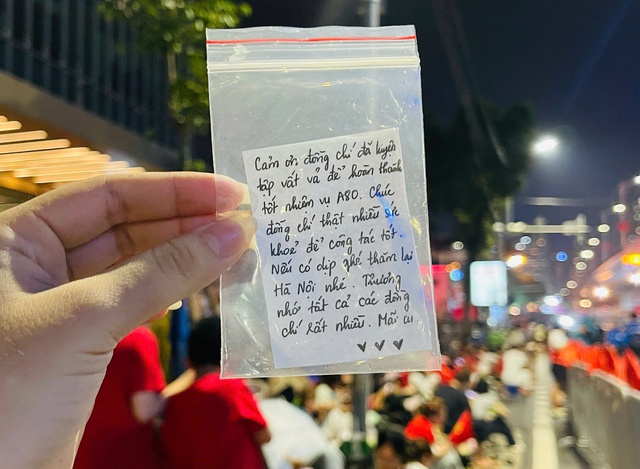 Cảm ơn đồng chí đã luyện
tập vất vả để hoàn thành
tốt nhiệm vụ A80. Chúc
đồng chí thật nhiều sức
khoẻ để công tác tốt.
Nếu có dịp ghé thăm lại
Hà Nội nhé. Thương
nhớ tất cả các đồng
chí rất nhiều. Mãi iu.